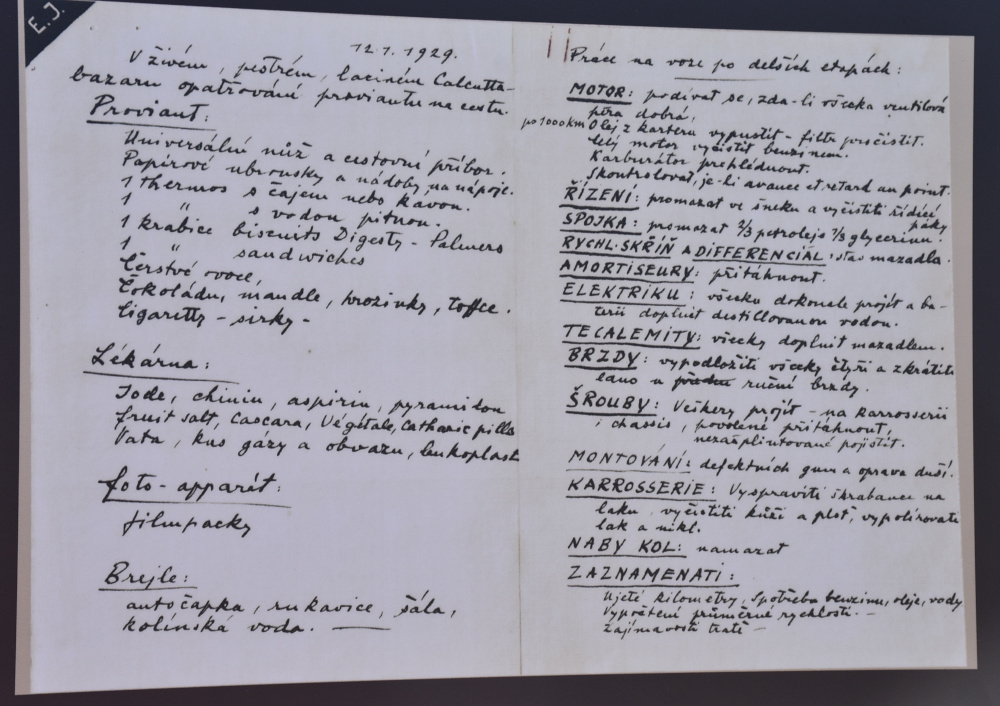 E.J.
12.1.1929.
V živém, pestrém, laciném Calcutta-
bazaru opatřování proviantu na cestu.
Proviant:
Universální nůž a cestovní příbor.
Papírové ubrousky a nádoby na nápoje.
1 thermos s čajem nebo kávou.
1 " s vodou pitnou.
1 krabice biscuits Digesty - Palmers
1 " sandwiches
Čerstvé ovoce,
Čokoládu, mandle, hrozinky, toffee.
Cigaretty - sirky -
Lékárna:
Jode, chinin, aspirin, pyramidon
fruit salt, Cascara, Végétale, Catharic pills
Vata, kus gázy a obvazu, leukoplast
foto - apparát:
filmpacky
Brejle:
autočapka, rukavice, šála,
kolínská voda.
Práce na voze po delších etapách:
MOTOR: podívat se, zda-li všecka ventilová
péra dobrá,
po 1000 km Olej z karteru vypustit - filtr pročistit.
Celý motor vyčistit benzinem.
Karburátor prohlédnout.
Skontrolovat, je-li avance et retard au point.
ŘÍZENÍ: promazat ve šneku a vyčistiti řídící
páky
SPOJKA: promazat 2/3 petroleje 1/3 glycerinu.
RYCHL. SKŘÍŇ A DIFFERENCIÁL: stav mazadla.
AMORTISEURY: přitáhnout.
ELEKTRIKU: všecku dokonale projít a ba-
terii doplnit destillovanou vodou.
TECALEMITY: všecky doplnit mazadlem.
BRZDY: vypodložiti všecky čtyři a zkrátiti
lano u ruční brzdy.
ŠROUBY: Veškery projít - na karrosserii
i chassis, povolené přitáhnout,
nezašplintované pojistit.
MONTOVÁNÍ: defektních gum a oprava duší.
KARROSSERIE: Vyspraviti škrabance na
laku, vyčistiti kůži a plsť, vypolírovati
lak a nikl.
NABY KOL: namazat
ZAZNAMENATI:
Ujeté kilometry, Spotřeba benzinu, oleje, vody
Vypočtení průměrné rychlosti. -
Zajímavosti tratě -